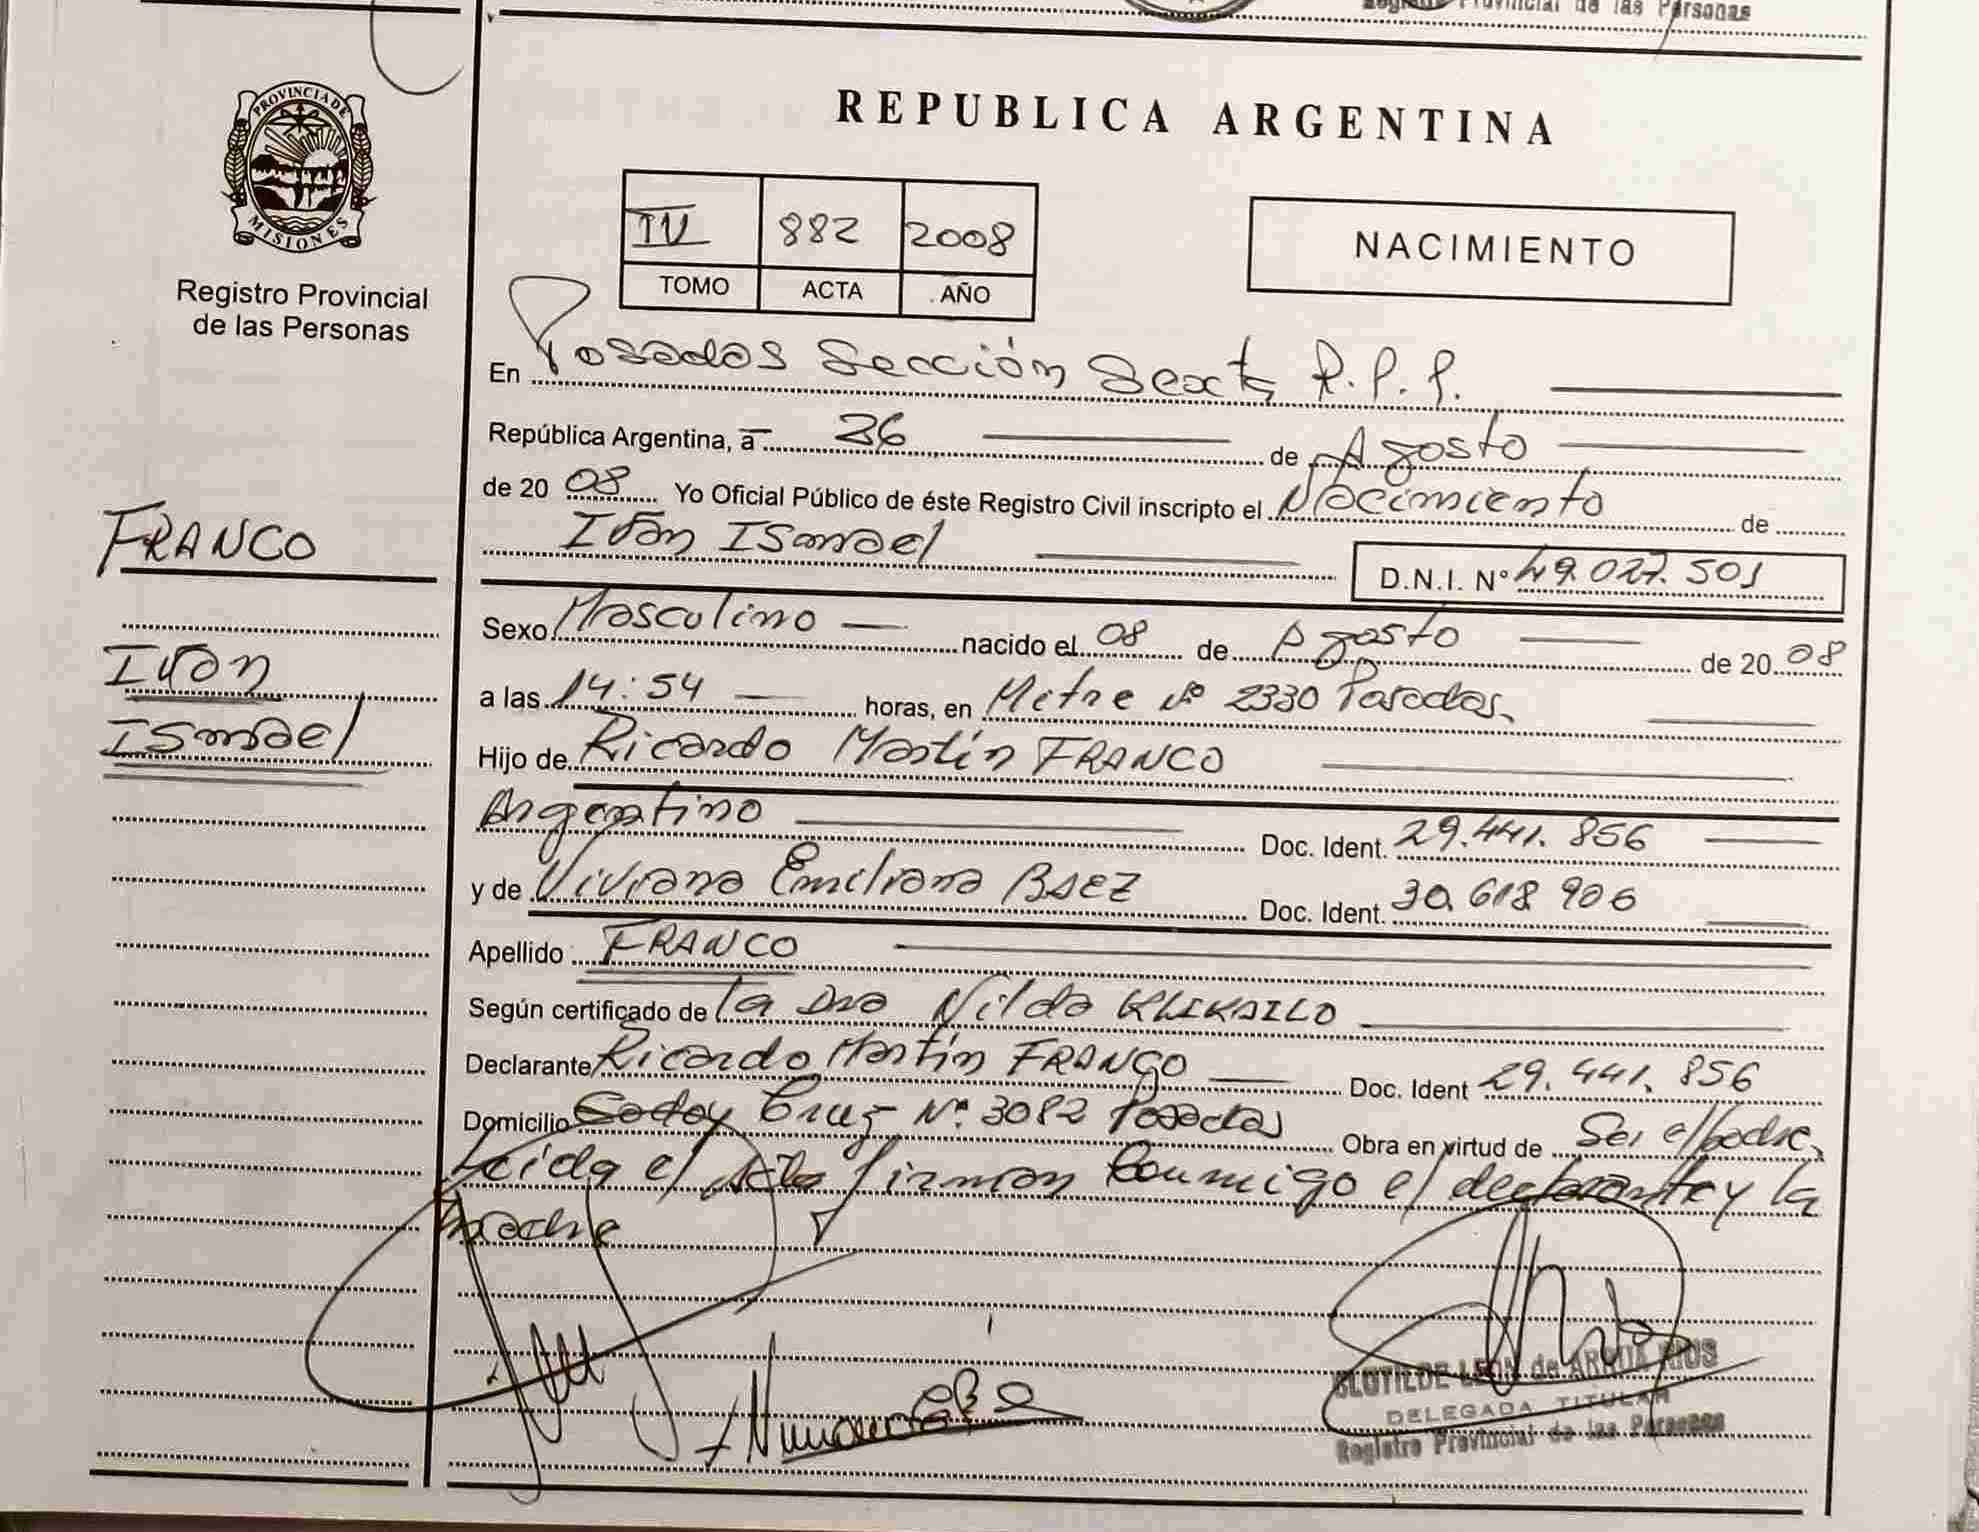 Registro Provincial de las Personas
PROVINCIA DE
MISIONES
Registro Provincial
de las Personas
FRANCO
Iván
Ismael
REPUBLICA ARGENTINA
IV 882 2008
TOMO ACTA AÑO
NACIMIENTO
En Posadas Sección Sexta R.P.P.
República Argentina, a 26 de Agosto
de 20 08 Yo Oficial Público de éste Registro Civil inscripto el Nacimiento de
Iván Ismael D.N.I. Nº 49.027.501
Sexo Masculino nacido el 08 de Agosto de 20 08
a las 14:54 horas, en Mitre Nº 2330 Posadas
Hijo de Ricardo Martín FRANCO
Argentino Doc. Ident. 29.441.856
y de Viviana Emiliana BAEZ Doc. Ident. 30.618.906
Apellido FRANCO
Según certificado de la Dra Nilda
Declarante Ricardo Martín FRANCO Doc. Ident 29.441.856
Domicilio Godoy Cruz Nº 3082 Posadas Obra en virtud de Ser el padre,
Leída el Acta firman Conmigo el declarante y la
madre
CLOTILDE LEON de
DELEGADA TITULAR
Registro Provincial de las Personas